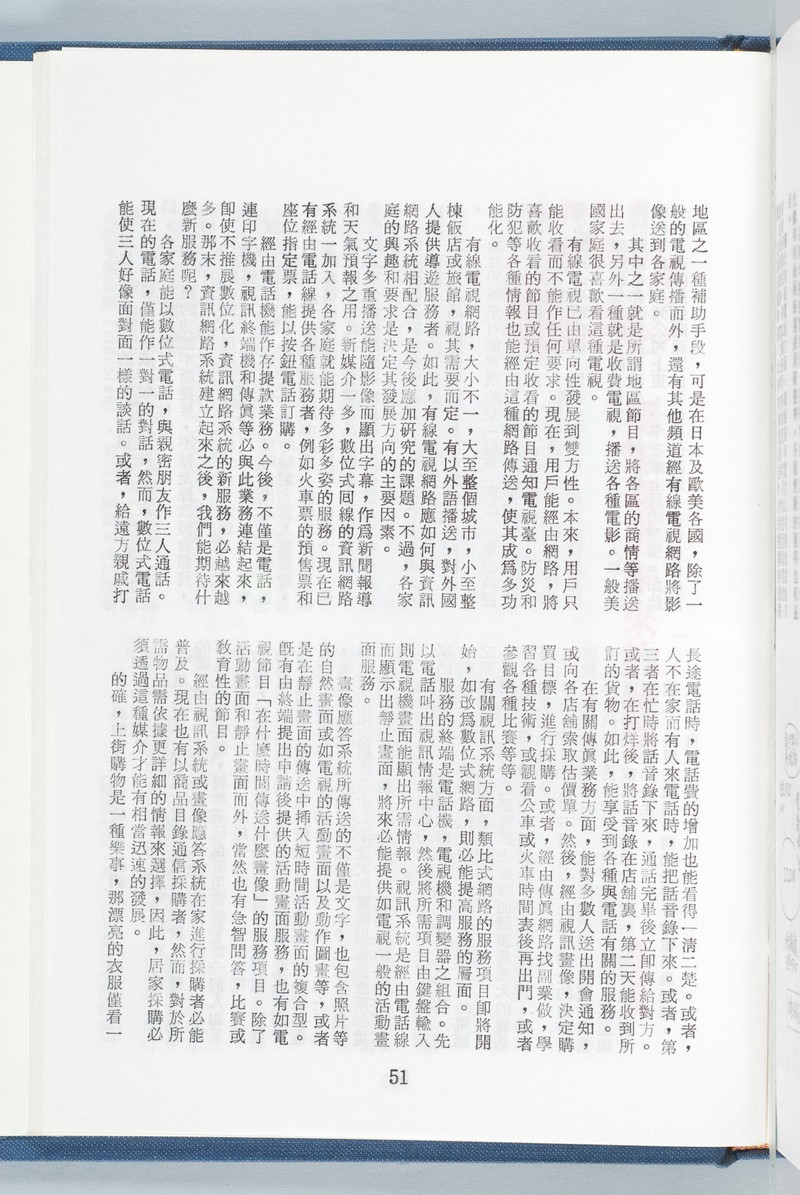 地區之一種補助手段，可是在日本及歐美各國，除了一
般的電視傳播而外，還有其他頻道經有線電視網路將影
像送到各家庭。
其中之一就是所謂地區節目，將各區的商情等播送
出去，另外一種就是收費電視，播送各種電影。一般美
國家庭很喜歡看這種電視。
有線電視已由單向性發展到雙方性。本來，用戶只
能收看而不能作任何要求。現在，用戶能經由網路，將
喜歡收看的節目或預定收看的節目通知電視臺。防災和
防犯等各種情報也能經由這種網路傳送，使其成爲多功
能化。
有線電視網路，大小不一，大至整個城市，小至整
棟飯店或旅館，視其需要而定。有以外語播送，對外國
人提供導遊服務者。如此，有線電視網路應如何與資訊
網路系統相配合，是今後應加研究的課題。不過，各家
庭的興趣和要求是決定其發展方向的主要因素。
文字多重播送能隨影像而顯出字幕，作爲新聞報導
和天氣預報之用。新媒介一多，數位式回線的資訊網路
系統一加入，各家庭就能期待多彩多姿的服務。現在已
有經由電話線提供各種服務者，例如火車票的預售票和
座位指定票，能以按鈕電話訂購。
經由電話機能作存提款業務。今後，不僅是電話，
連印字機，視訊終端機和傳眞等必與此業務連結起來，
即使不推展數位化，資訊網路系統的新服務，必越來越
多。那末，資訊網路系統建立起來之後，我們能期待什
麽新服務呢？
各家庭能以數位式電話，與親密朋友作三人通話。
現在的電話，僅能作一對一的對話，然而，數位式電話
能使三人好像面對面一樣的談話。或者，給遠方親戚打
長途電話時，電話費的增加也能看得一清二楚。或者，
人不在家而有人來電話時，能把話音錄下來。或者，第
三者在忙時將話音錄下來，通話完畢後立卽傳給對方。
或者，在打烊後，將話音錄在店舖裏，第二天能收到所
訂的貨物。如此，能享受到各種與電話有關的服務。
在有關傳眞業務方面，能對多數人送出開會通知，
或向各店舖索取估價單。然後，經由視訊畫像，決定購
買目標，進行採購。或者，經由傳眞網路找副業做，學
習各種技術，或觀看公車或火車時間表後再出門，或者
參觀各種比賽等等。
有關視訊系統方面，類比式網路的服務項目卽將開
始，如改爲數位式網路，則必能提高服務的層面。
服務的終端是電話機，電視機和調變器之組合。先
以電話叫出視訊情報中心，然後將所需項目由鍵盤輸入
則電視機畫面能顯出所需情報。視訊系統是經由電話線
而顯示出靜止畫面，將來必能提供如電視一般的活動畫
面服務。
畫像應答系統所傳送的不僅是文字，也包含照片等
的自然畫面或如電視的活動畫面以及動作圖畫等，或者
是在靜止畫面的傳送中揷入短時間活動畫面的複合型。
旣有由終端提出申請後提供的活動畫面服務，也有如電
視節目「在什麽時間傳送什麽畫像」的服務項目。除了
活動畫面和靜止畫面而外，當然也有急智問答，比賽或
敎育性的節目。
經由視訊系統或畫像應答系統在家進行採購者必能
普及。現在也有以商品目錄通信採購者，然而，對於所
需物品需依據更詳細的情報來選擇，因此，居家採購必
須透過這種媒介才能有相當迅速的發展。
的確，上街購物是一種樂事，那漂亮的衣服僅看一
51